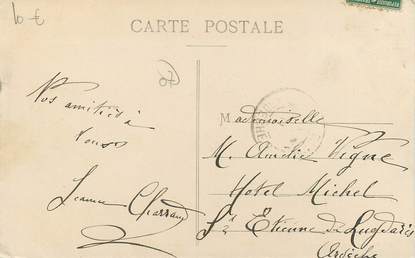 10 €
CARTE POSTALE
07
Nos amitiés à
tous
Jeanne Charrau
Mademoiselle
M. Amélie Vigne
Hotel Michel
St Etienne de Lugdarès
Ardèche